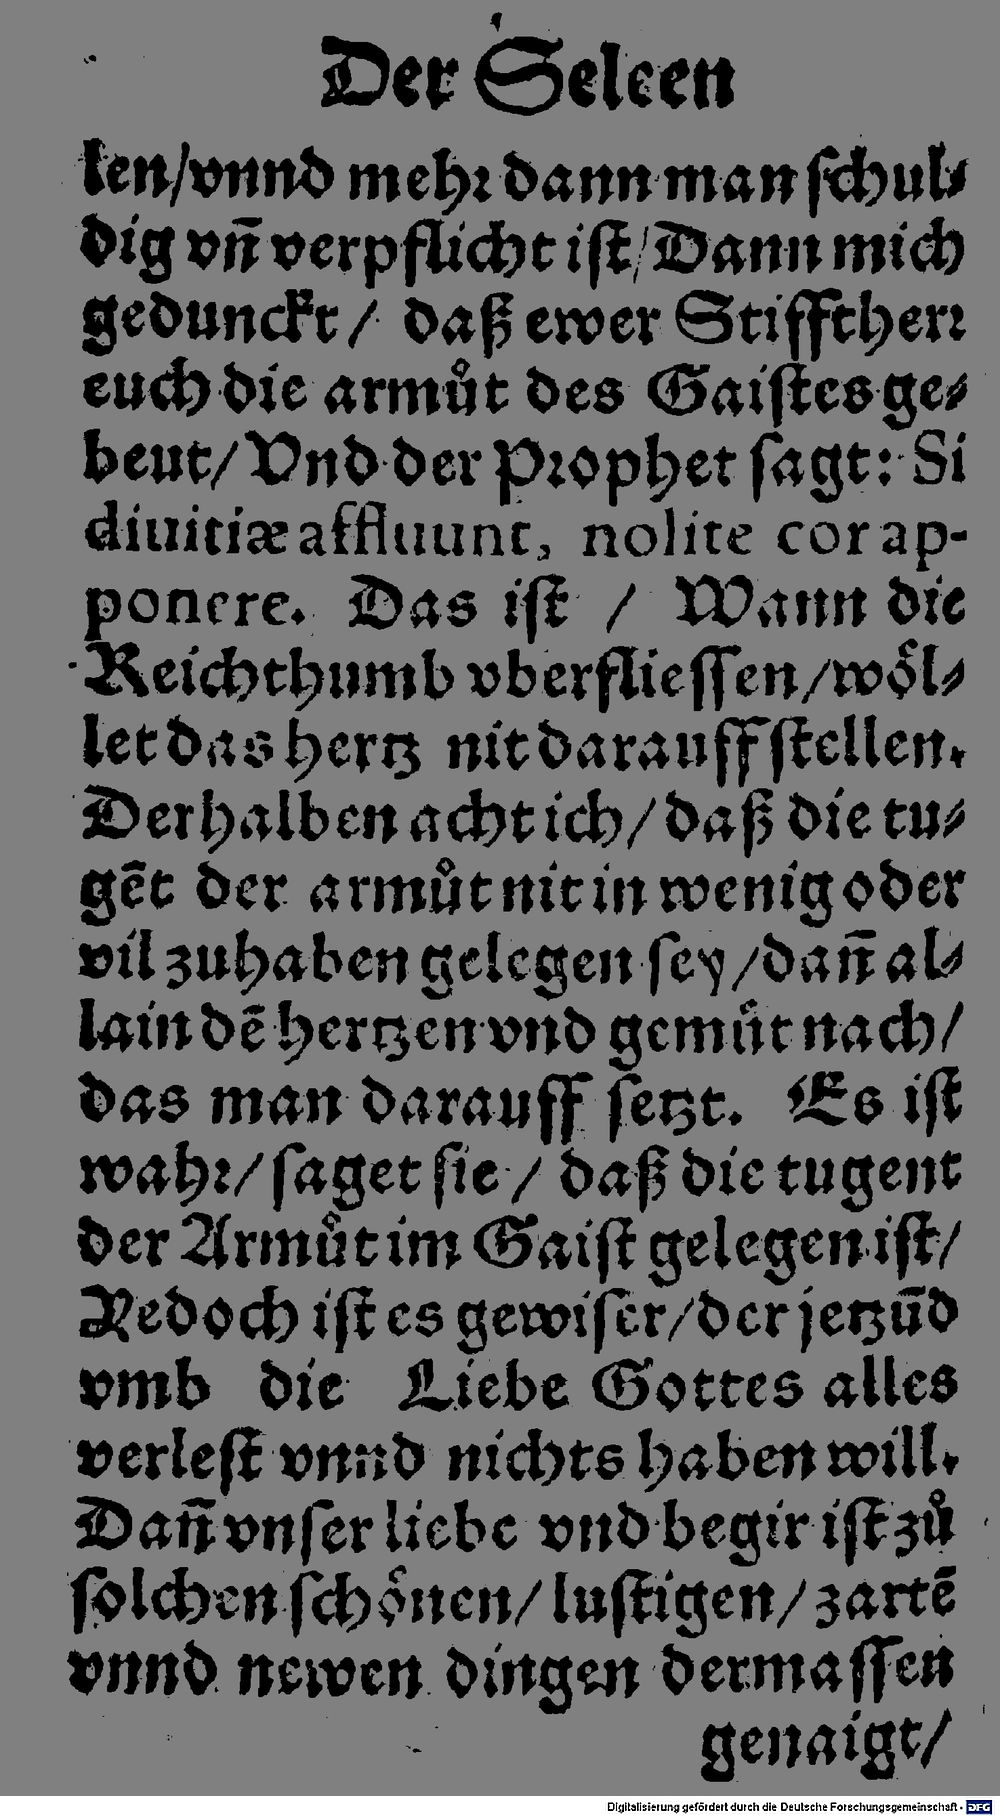 Der Seleen
len/vnnd mehr dann man schul⸗
dig vñ verpflicht ist/Dann mich
gedunckt / daß ewer Stifftherr
euch die armuͦt des Gaistes ge⸗
beut/Vnd der Prophet sagt: Si
diuitiæ affluunt, nolite cor ap-
ponere. Das ist / Wann die
Reichthumb vberfliessen/woͤl⸗
let das hertz nit darauff stellen.
Derhalben acht ich/daß die tu⸗
gẽt der armuͦt nit in wenig oder
vil zuhaben gelegen sey/dañ al⸗
lain dẽ hertzen vnd gemuͤt nach/
das man darauff setzt. Es ist
wahr/saget sie / daß die tugent
der Armuͦt im Gaist gelegen ist/
Yedoch ist es gewiser/der jetzũd
vmb die Liebe Gottes alles
verlest vnnd nichts haben will.
Dañ vnser liebe vnd begir ist zuͦ
solchen schoͤnen/lustigen/zartẽ
vnnd newen dingen dermassen
genaigt/
Digitalisierung gefördert durch die Deutsche Forschungsgemeinschaft - DFG